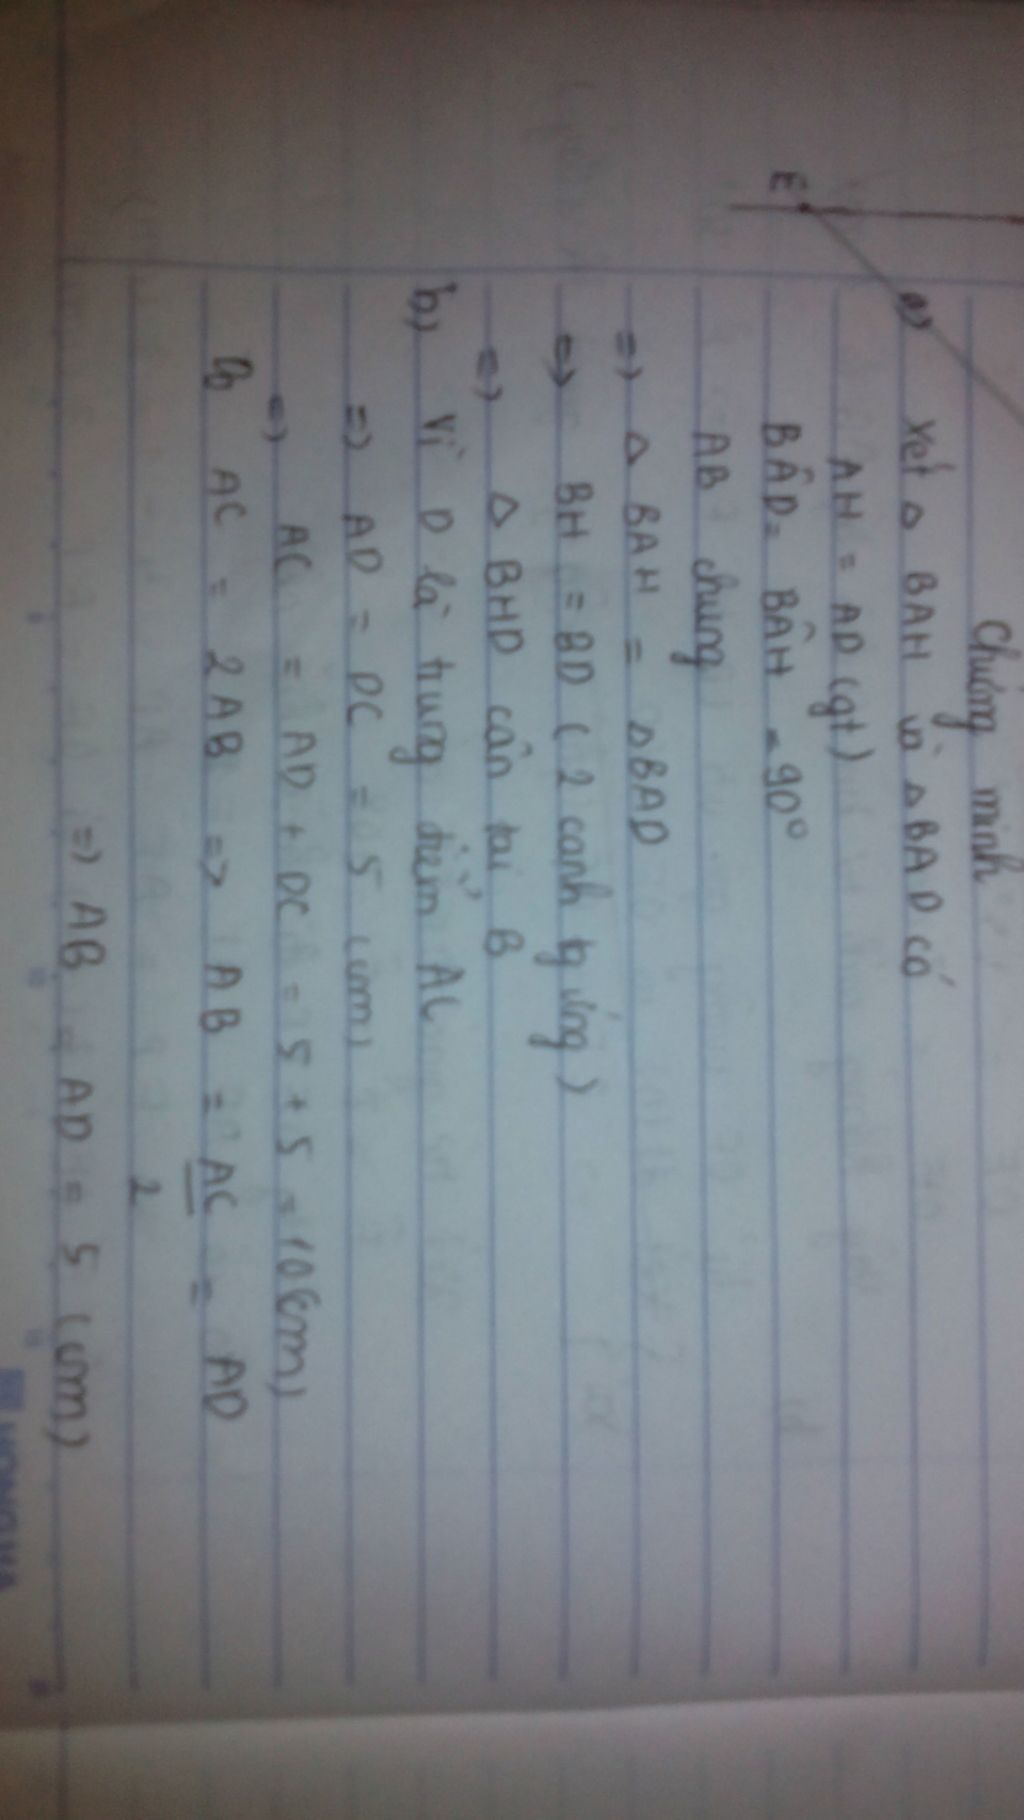 E
Chứng minh
a) Xét Δ BAH và Δ BAD có
AH = AD (gt)
BÂD = BÂH = 90°
AB chung
=> Δ BAH = Δ BAD
=> BH = BD ( 2 cạnh tg ứng )
=> Δ BHD cân tại B
b) Vì D là trung điểm AC
=> AD = DC = 5 (cm)
=> AC = AD + DC = 5 + 5 = 10 (cm)
AC = 2AB => AB = AC/2 = AD
=> AB = AD = 5 (cm)